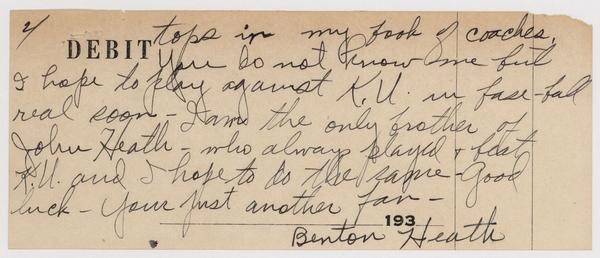 2/ tops in my book of coaches.
DEBIT You do not know me but
I hope to play against K.U. in base-ball
real soon - I am the only brother of
John Heath - who always played & beat
K.U. and I hope to do the same - Good
luck - Yours just another fan -
193
Benton Heath